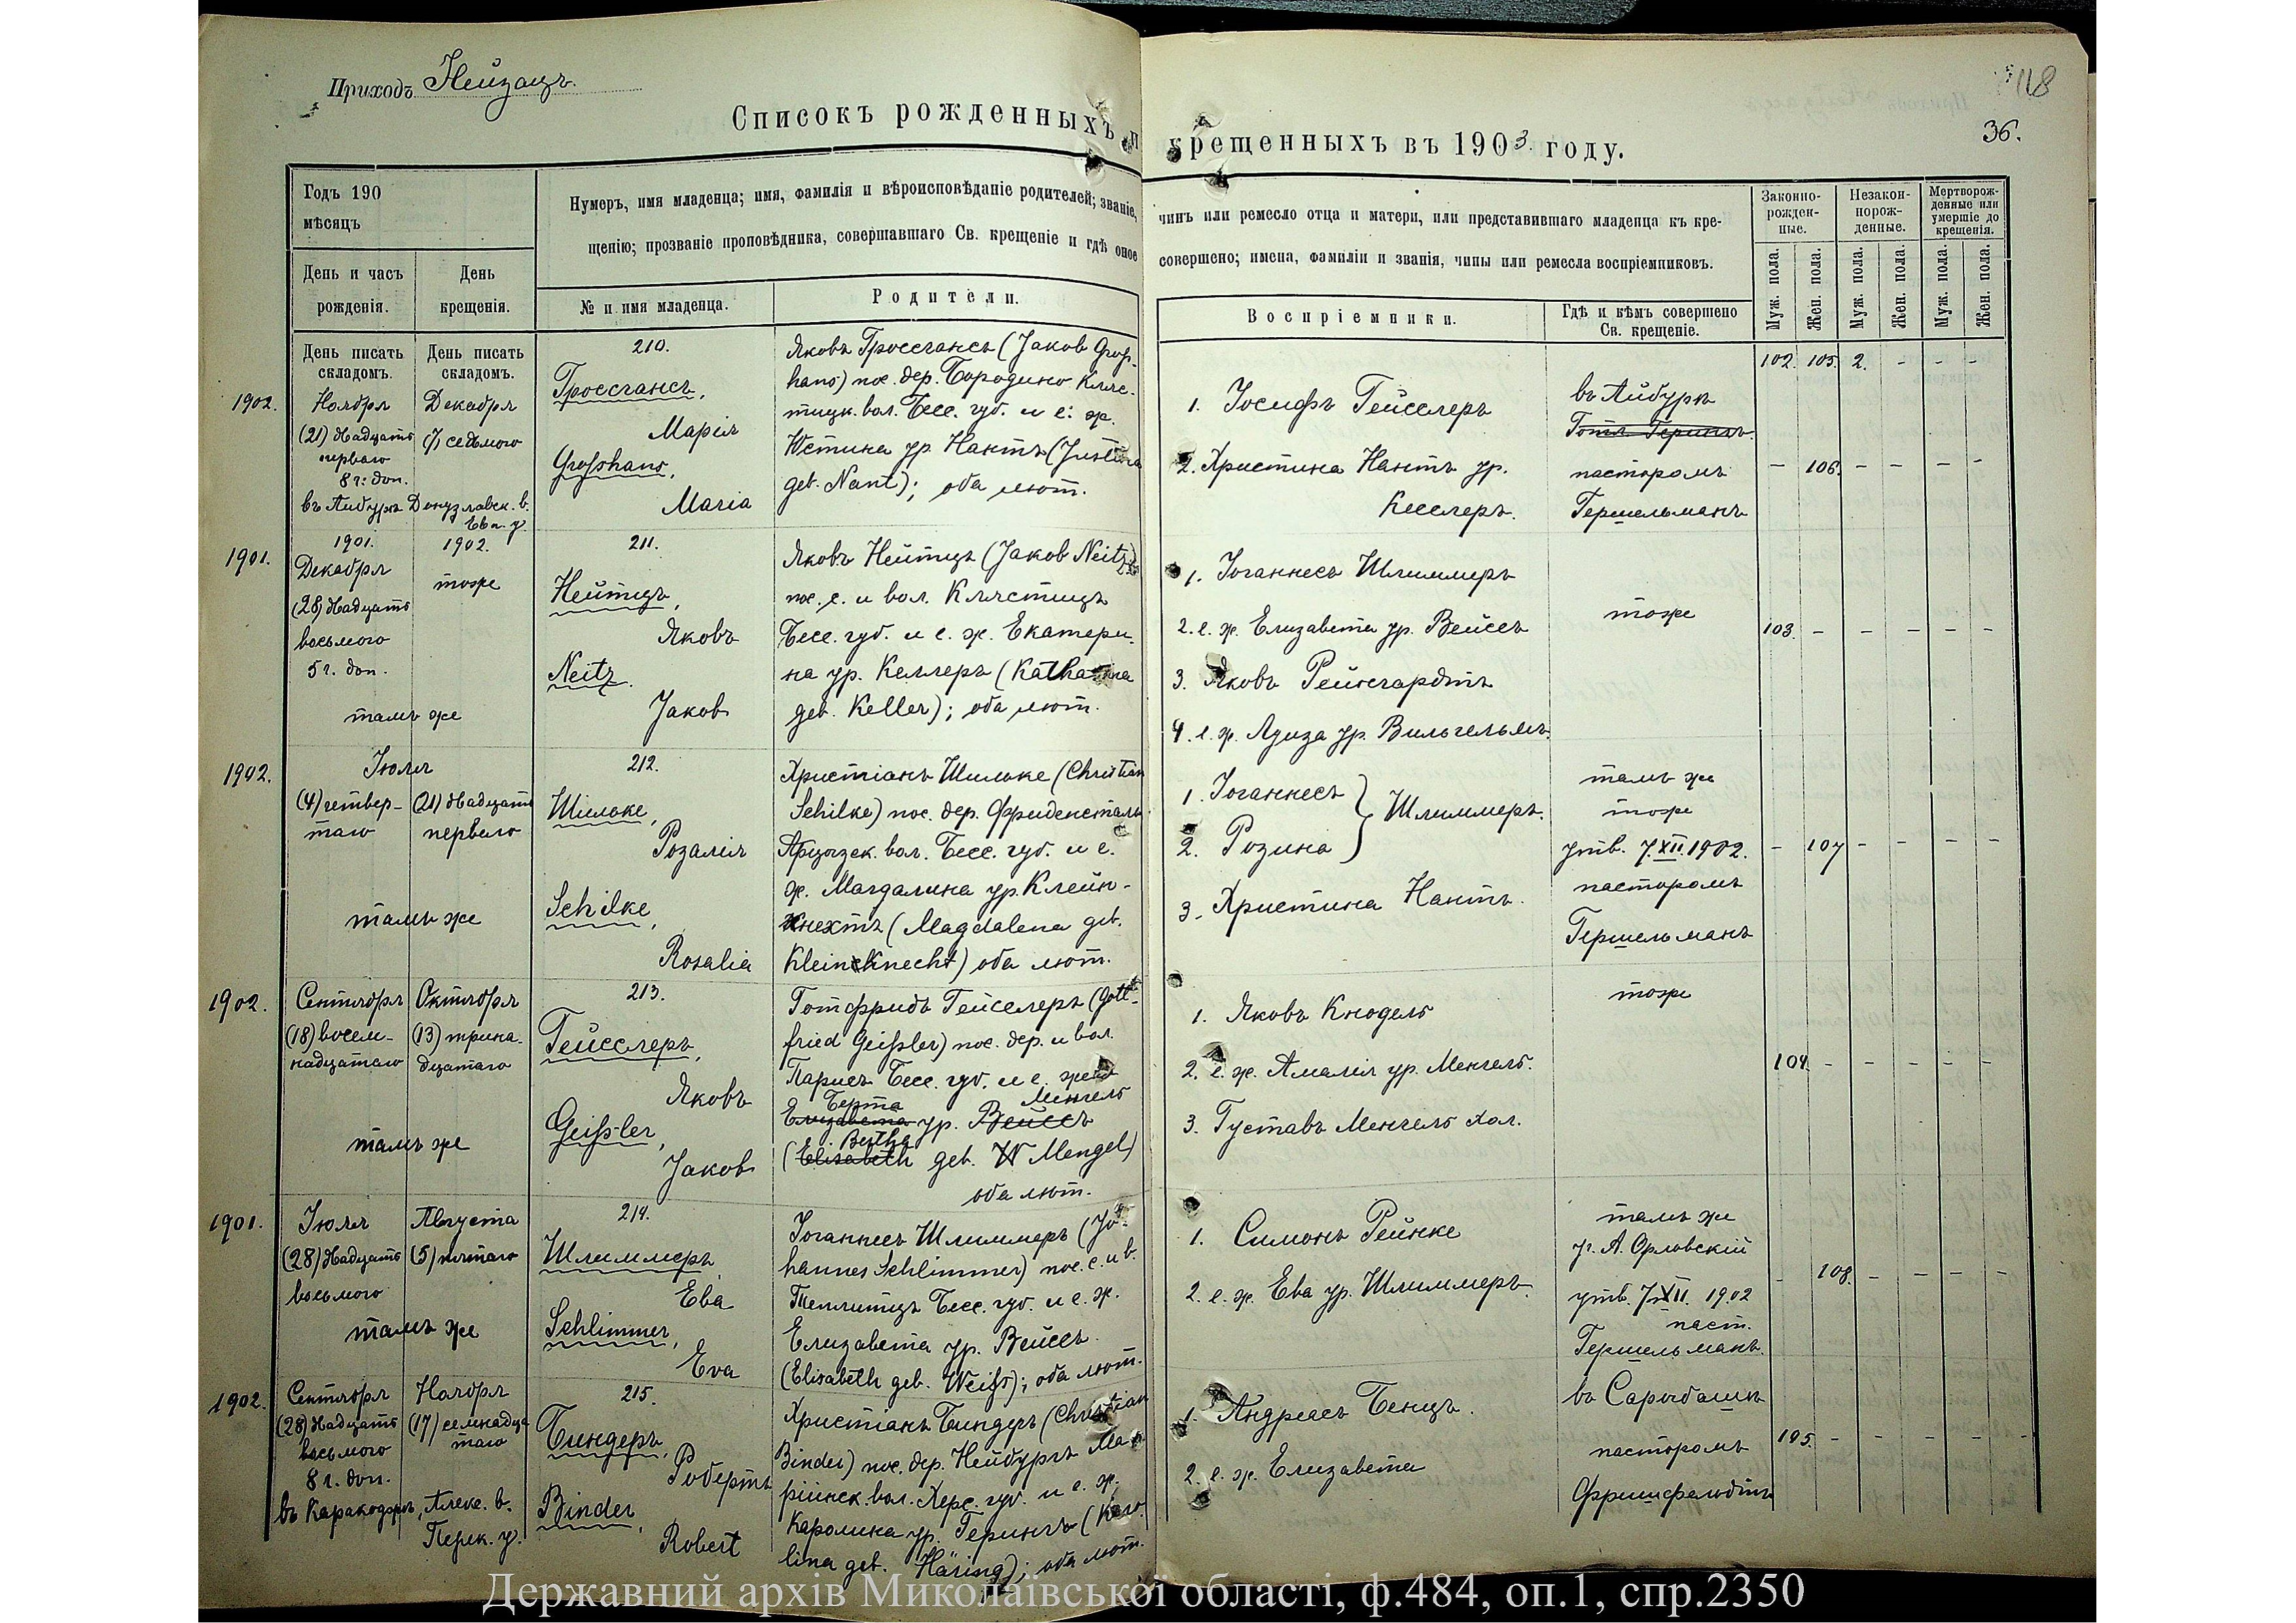 Приходъ Нейзацъ.
118
36.
Списокъ рожденныхъ и крещенныхъ въ 1903. году.
Годъ 190
мѣсяцъ
День и часъ
рожденія.
День
крещенія.
Нумеръ, имя младенца; имя, фамилія и вѣроисповѣданіе родителей; званіе, чинъ или ремесло отца и матери, или представившаго младенца къ кре-
щенію; прозваніе проповѣдника, совершавшаго Св. крещеніе и гдѣ оное совершено; имена, фамиліи и званія, чины или ремесла воспріемниковъ.
№ и имя младенца.
Родители.
Воспріемники.
Гдѣ и кѣмъ совершено
Св. крещеніе.
Законно-
рожден-
ные.
Незакон-
норож-
денные.
Мертворож-
денные или
умершіе до
крещенія.
Муж. пола.
Жен. пола.
Муж. пола.
Жен. пола.
Муж. пола.
Жен. пола.
День писать
складомъ.
День писать
складомъ.
102. 105. 2. - - -
1902.
Ноября
(21) двадцать
перваго
8 ч. доп.
въ Айбурѣ
Декабря
(7) седьмого
Донузлавск. в.
Евп. у.
210.
Гроссгансъ,
Марія
Großhans,
Maria
Яковъ Гроссгансъ (Jakob Groß-
hans) пос. дер. Бородино Кляс-
тицк. вол. Бесс. губ. и е. ж.
Юстина ур. Нантъ (Justina
geb. Nant); оба лют.
1. Іосифъ Гейсслеръ
2. Христина Нантъ ур.
Кесслеръ.
въ Айбурѣ
пасторомъ
Гершельманъ
- 106. - - - -
1901.
1901.
Декабря
(28) двадцать
восьмого
5 ч. доп.
1902.
тоже
тамъ же
211.
Нейтцъ,
Яковъ
Neitz.
Jakob
Яковъ Нейтцъ (Jakob Neitz)
пос. с. и вол. Клястицъ
Бесс. губ. и е. ж. Екатери-
на ур. Келлеръ (Katharina
geb. Keller); оба лют.
1. Іоганнесъ Шлиммеръ
2. е. ж. Елизавета ур. Вейсъ
3. Яковъ Рейнгардтъ
4. е. ж. Луиза ур. Вильгельмъ.
тоже
103. - - - - -
1902.
Іюля
(4) четвер-
таго
(21) двадцать
перваго
тамъ же
212.
Шильке,
Розалія
Schilke,
Rosalia
Христіанъ Шильке (Christian
Schilke) пос. дер. Фриденсталь
Арцызск. вол. Бесс. губ. и е.
ж. Магдалина ур. Клейн-
кнехтъ (Magdalena geb.
Kleinknecht) оба лют.
1. Іоганнесъ
2. Розина
Шлиммеръ.
3. Христина Нантъ.
тамъ же
тоже
утв. 7.XII.1902.
пасторомъ
Гершельманъ
- 107 - - - -
1902.
Сентября
(18) восем-
надцатаго
Октября
(13) трина-
дцатаго
тамъ же
213.
Гейсслеръ,
Яковъ
Geißler,
Jakob
Готфридъ Гейсслеръ (Gott-
fried Geißler) пос. дер. и вол.
Парисъ Бесс. губ. и е. жена
Берта Менгель
Елизавета ур. Вейссъ
Bertha
(Elisabeth geb. W Mengel)
оба лют.
1. Яковъ Кнодель
2. е. ж. Амалія ур. Менгель.
3. Густавъ Менгель хол.
тоже
104. - - - - -
1901.
Іюля
(28) двадцать
восьмого
Августа
(5) пятаго
тамъ же
214.
Шлиммеръ,
Ева
Schlimmer,
Eva
Іоганнесъ Шлиммеръ (Jo-
hannes Schlimmer) пос. с. и в.
Теплитцъ Бесс. губ. и е. ж.
Елизавета ур. Вейссъ
(Elisabeth geb. Weiß); оба лют.
1. Симонъ Рейнке
2. е. ж. Ева ур. Шлиммеръ.
тамъ же
уч. А. Орловскій
утв. 7.XII. 1902
паст.
Гершельманъ.
- 108. - - - -
1902.
Сентября
(28) двадцать
восьмого
8 ч. доп.
Ноября
(17) семнадца
таго
въ Каракоджѣ, Алекс. в.
Перек. у.
215.
Биндеръ,
Робертъ
Binder,
Robert
Христіанъ Биндеръ (Christian
Binder) пос. дер. Нейбургъ Ма-
ріинск. вол. Херс. губ. и е. ж.
Каролина ур. Герингъ (Karo-
lina geb. Häring); оба лют.
1. Андреасъ Бенцъ.
2. е. ж. Елизавета
въ Сарыбашѣ
пасторомъ
Фришфельдтъ
105. - - - - -
Державний архів Миколаївської області, ф.484, оп.1, спр.2350